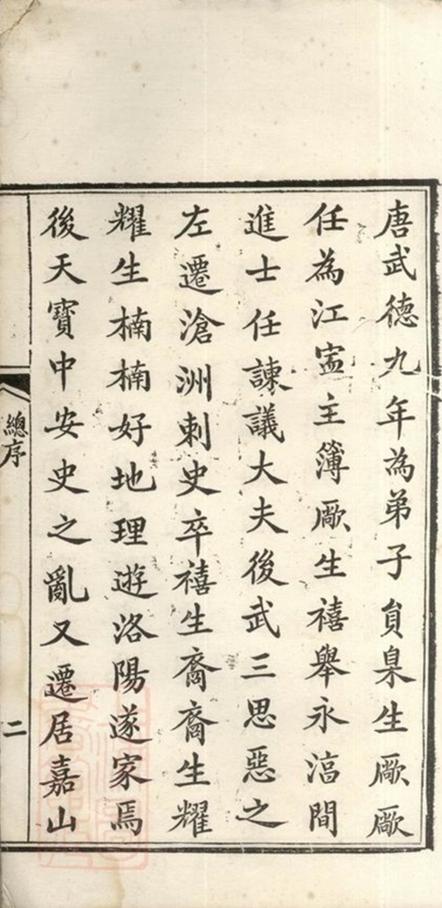 唐武德九年為弟子員臬生厥厥
任為江寍主簿厥生禧舉永湻間
進士任諫議大夫後武三思惡之
左遷滄洲刺史卒禧生裔裔生耀
耀生楠楠好地理遊洛陽遂家焉
後天寶中安史之亂又遷居嘉山
總序
二